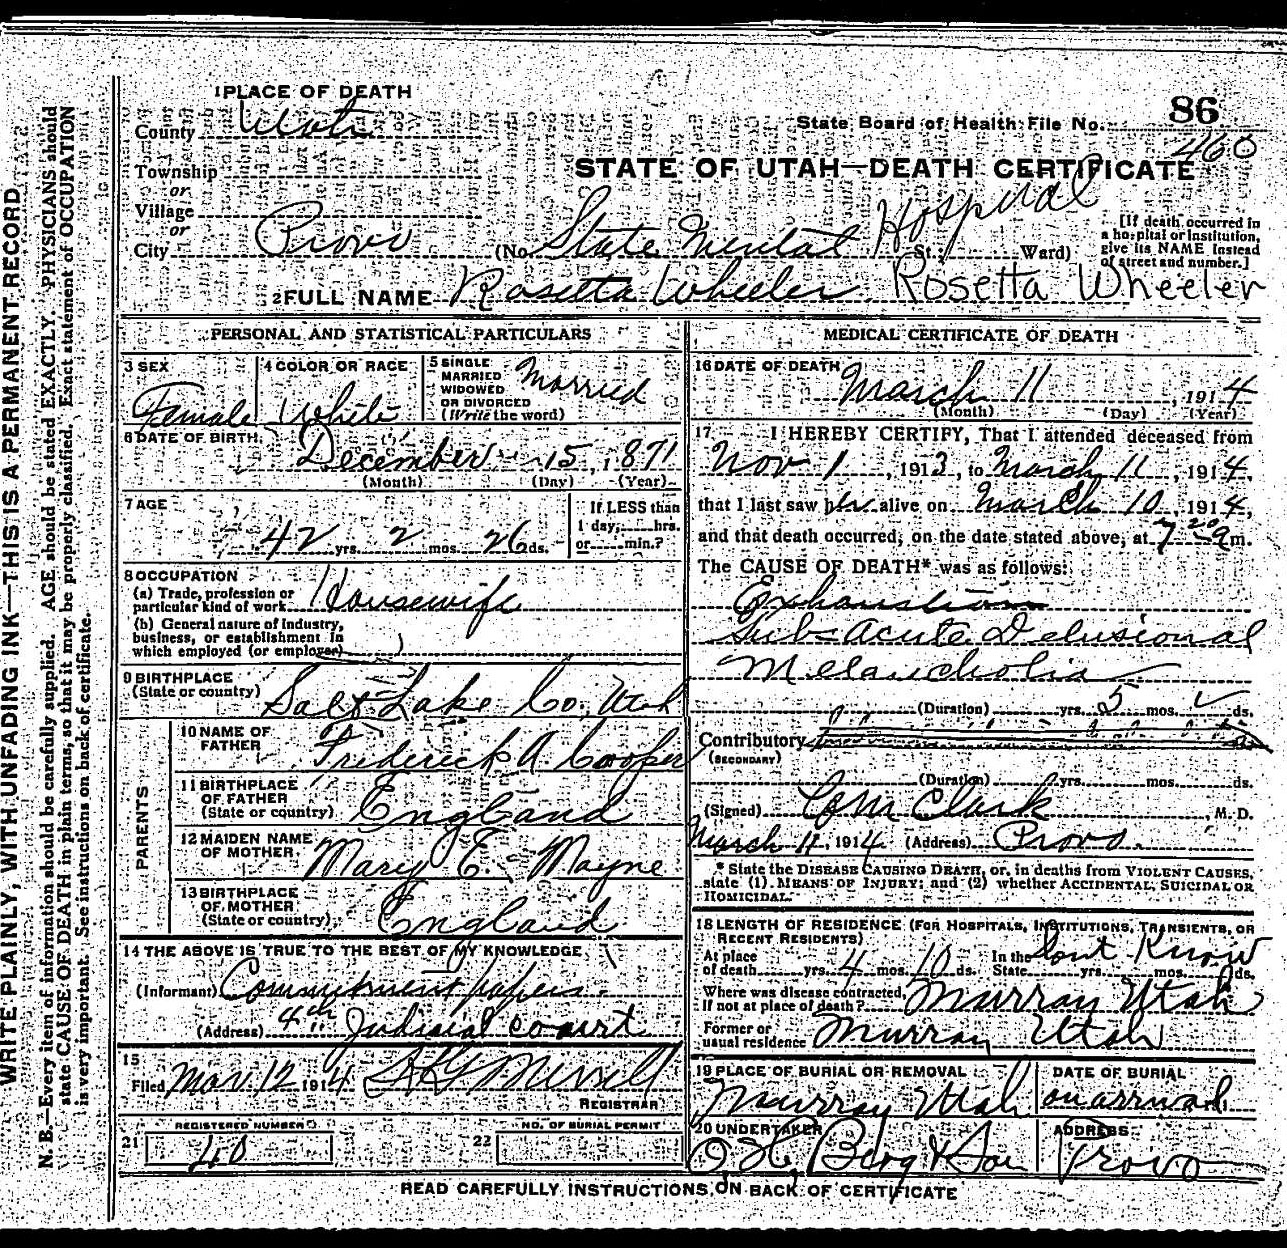 WRITE PLAINLY, WITH UNFADING INK—THIS IS A PERMANENT RECORD
N. B.—Every item of information should be carefully supplied. AGE should be stated EXACTLY. PHYSICIANS should
state CAUSE OF DEATH in plain terms, so that it may be properly classified. Exact statement of OCCUPATION
is very important. See instructions on back of certificate.
1 PLACE OF DEATH
County Utah
State Board of Health File No. 86
460
Township
or
Village
or
STATE OF UTAH—DEATH CERTIFICATE
City Provo (No. State Mental Hospital St. Ward)
[If death occurred in
a hospital or institution,
give its NAME instead
of street and number.]
2 FULL NAME Rosetta Wheeler Rosetta Wheeler
PERSONAL AND STATISTICAL PARTICULARS
3 SEX
Female
4 COLOR OR RACE
White
5 SINGLE
MARRIED
WIDOWED
OR DIVORCED
(Write the word)
Married
6 DATE OF BIRTH
December 15, 1871
(Month) (Day) (Year)
7 AGE
42 yrs. 2 mos. 26 ds.
If LESS than
1 day, hrs.
or min.?
8 OCCUPATION
(a) Trade, profession or
particular kind of work Housewife
(b) General nature of Industry,
business, or establishment in
which employed (or employer)
9 BIRTHPLACE
(State or country) Salt Lake Co, Utah
PARENTS
10 NAME OF
FATHER Frederick A Cooper
11 BIRTHPLACE
OF FATHER
(State or country) England
12 MAIDEN NAME
OF MOTHER Mary E. Mayne
13 BIRTHPLACE
OF MOTHER
(State or country) England
14 THE ABOVE IS TRUE TO THE BEST OF MY KNOWLEDGE
(Informant) Commitment papers
(Address) 4th Judicial court
15
Filed Mar 12 1914 Merrell
REGISTRAR
REGISTERED NUMBER
21 40
NO. OF BURIAL PERMIT
22
MEDICAL CERTIFICATE OF DEATH
16 DATE OF DEATH
March 11, 1914
(Month) (Day) (Year)
17 I HEREBY CERTIFY, That I attended deceased from
Nov 1, 1913, to March 11, 1914,
that I last saw her alive on March 10, 1914,
and that death occurred, on the date stated above, at 7 20 a m.
The CAUSE OF DEATH* was as follows:
Exhaustion
Sub-Acute Delusional
Melancholia
(Duration) yrs. 5 mos. ds.
Contributory
(SECONDARY)
(Duration) yrs. mos. ds.
(Signed) Clark, M. D.
March 11, 1914 (Address) Provo.
* State the DISEASE CAUSING DEATH, or, in deaths from VIOLENT CAUSES,
state (1) MEANS OF INJURY; and (2) whether ACCIDENTAL, SUICIDAL OR
HOMICIDAL.
18 LENGTH OF RESIDENCE (FOR HOSPITALS, INSTITUTIONS, TRANSIENTS, OR
RECENT RESIDENTS)
At place
of death yrs. 4 mos. 10 ds. In the State Dont Know yrs. mos. ds.
Where was disease contracted,
If not at place of death? Murray Utah
Former or
usual residence Murray Utah
19 PLACE OF BURIAL OR REMOVAL
Murray Utah
DATE OF BURIAL
on arrival
20 UNDERTAKER
O. H. Berg & Son
ADDRESS
Provo
READ CAREFULLY INSTRUCTIONS ON BACK OF CERTIFICATE